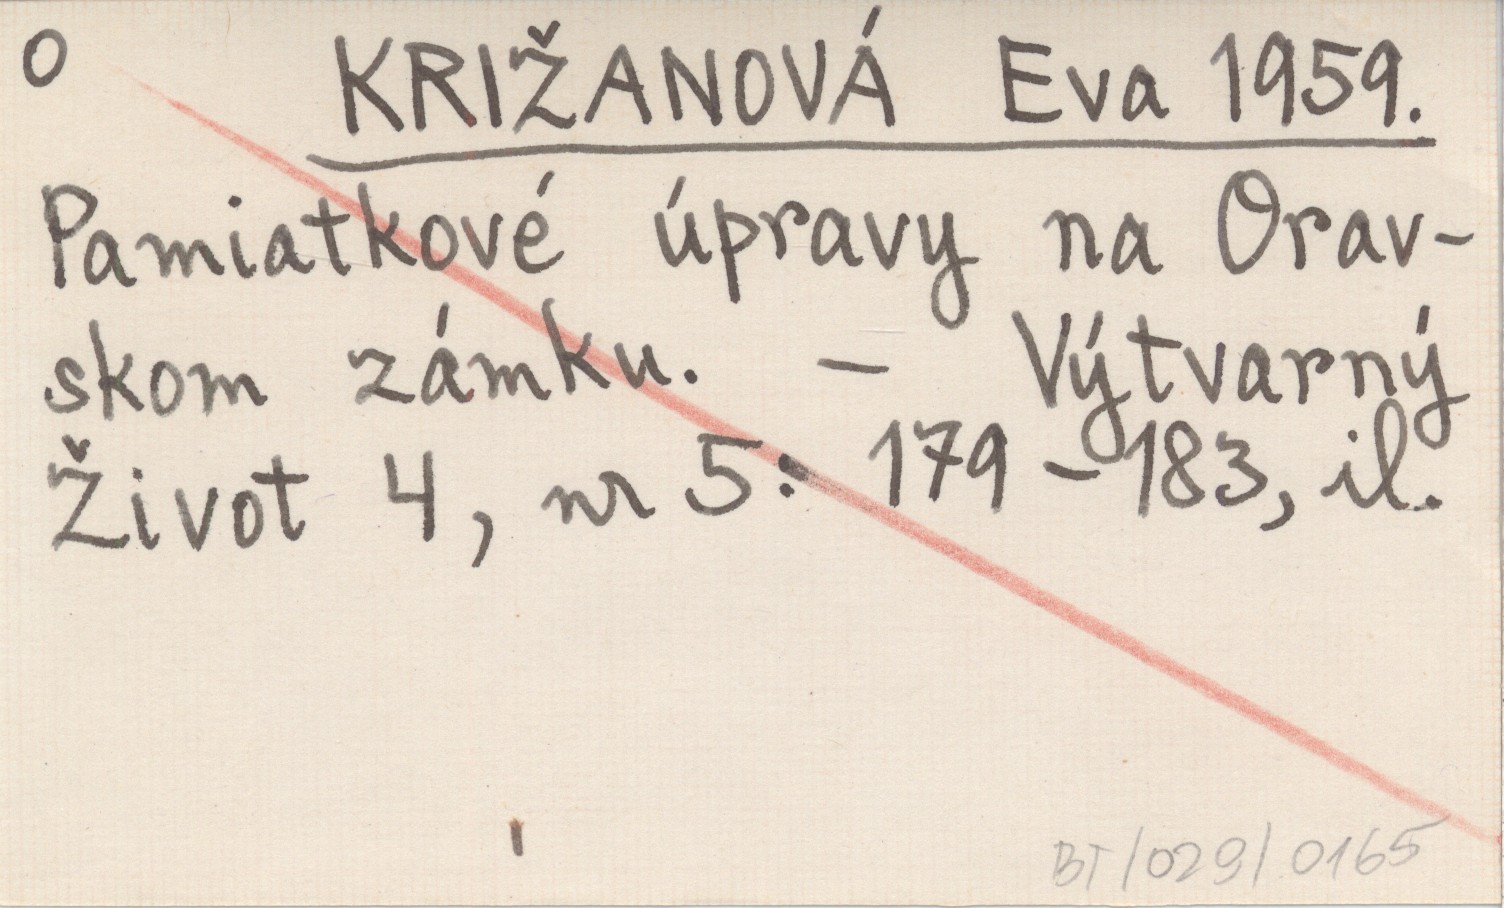 O KRIŽANOVÁ Eva 1959.
Pamiatkové úpravy na Orav-
skom zámku. – Výtvarný
Život 4, nr 5: 179 – 183, il.
BT/029/0165